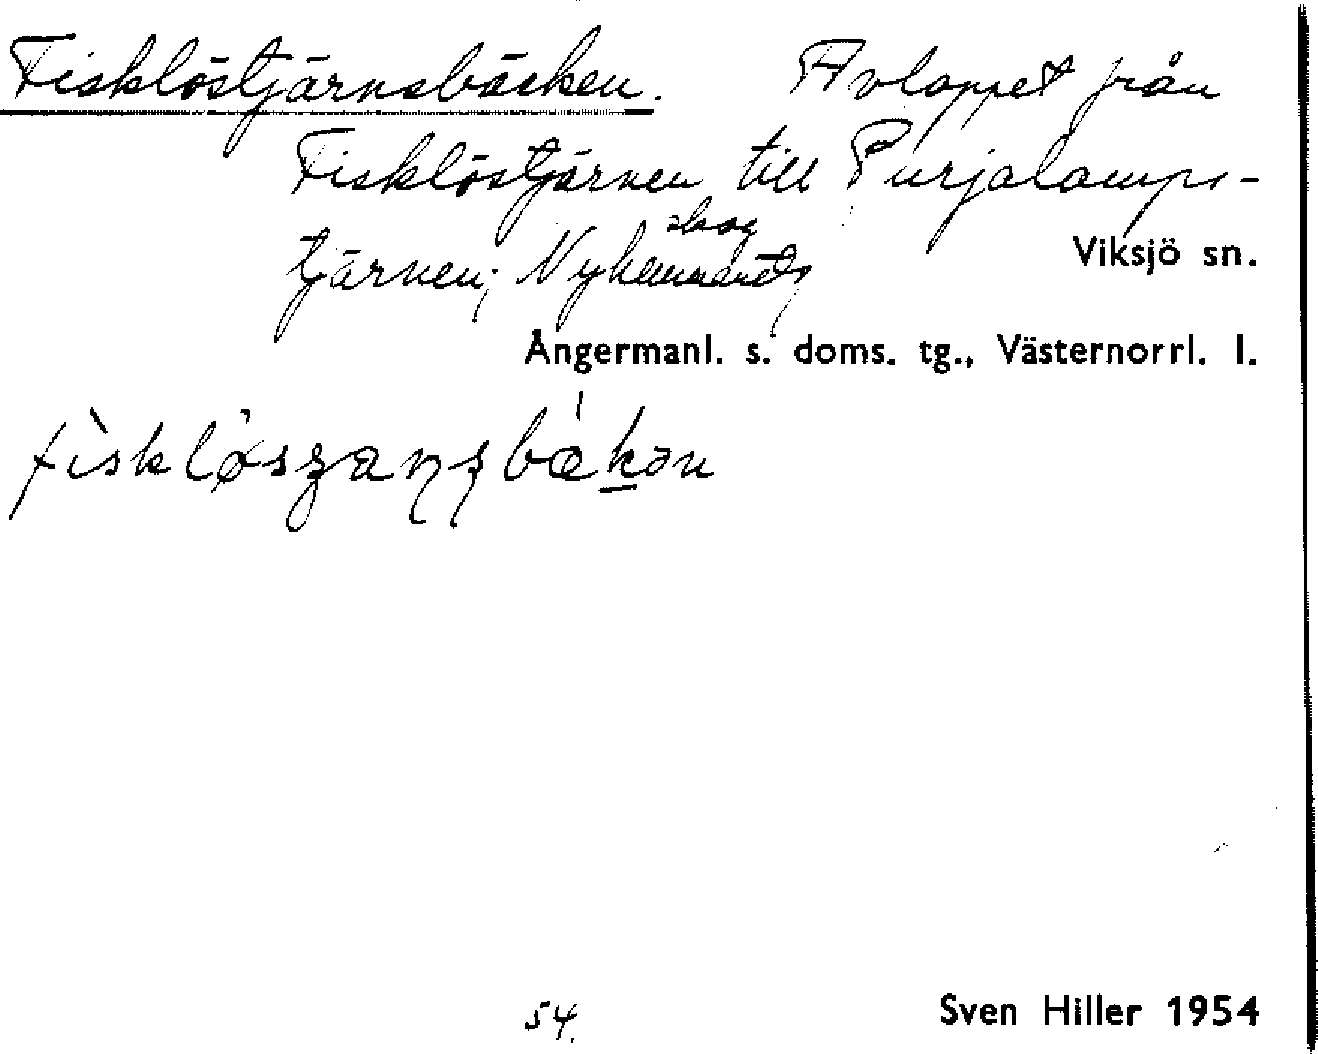 Fisklöstjärnsbäcken. Avloppet från
Fisklöstjärnen till Purjalamps-
tjärnen; Nyhemmanets skog
Viksjö sn.
Ångermanl. s. doms. tg., Västernorrl. l.
54.
Sven Hiller 1954